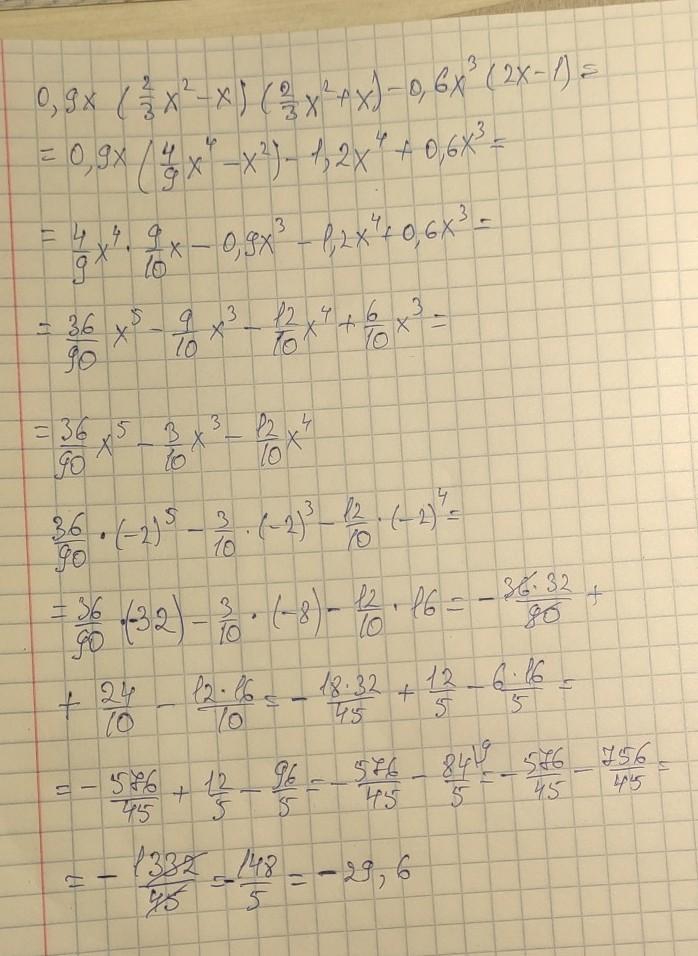 0,9x (2/3 x² - x) (2/3 x² + x) - 0,6x³ (2x - 1) =
= 0,9x (4/9 x⁴ - x²) - 1,2x⁴ + 0,6x³ =
= 4/9 x⁴ · 9/10 x - 0,9x³ - 1,2x⁴ + 0,6x³ =
= 36/90 x⁵ - 9/10 x³ - 12/10 x⁴ + 6/10 x³ =
= 36/90 x⁵ - 3/10 x³ - 12/10 x⁴
36/90 · (-2)⁵ - 3/10 · (-2)³ - 12/10 · (-2)⁴ =
= 36/90 · (-32) - 3/10 · (-8) - 12/10 · 16 = - 36·32/90 +
+ 24/10 - 12·16/10 = - 18·32/45 + 12/5 - 6·16/5 =
= - 576/45 + 12/5 - 96/5 = - 576/45 - 84/5 \9 = - 576/45 - 756/45 =
= - 1332/45 = - 148/5 = - 29,6